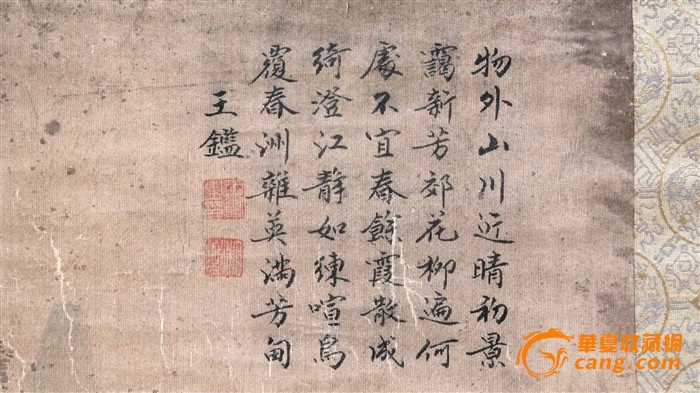 物外山川近晴初景
靄新芳郊花柳遍何
處不宜春餘霞散成
綺澄江靜如練喧鳥
覆春洲雜英滿芳甸
王鑑
華夏收藏網
cang.com